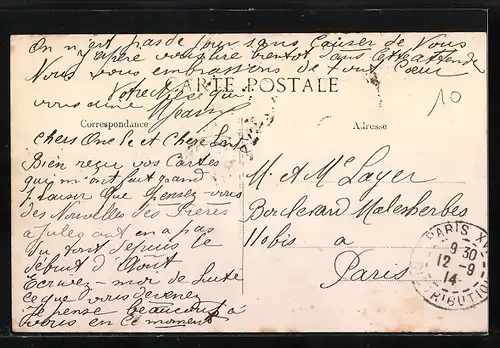 On n'est pas de jour sans Causer de Vous
J'espère vous lire bientot dans cette attende
Nous vous embrassons de tout Coeur
Votre Nièce qui
vous aime
CARTE POSTALE
10
Correspondance
Adresse
chers Oncle et Chère
Bien reçu vos Cartes
qui m'ont fait grand
plaisir Que pensez-vous
des Nouvelles des Frères
à Jules ont en a pas
du tout depuis le
debut d'Aout
Ecrivez-moi de suite
ce que vous devenez
Je pense beaucoup à
vous en ce moment
M. et Me Layer
Boulevard Malesherbes
110bis à
Paris
PARIS XVII
9 30
12 - 9
14
DISTRIBUTION